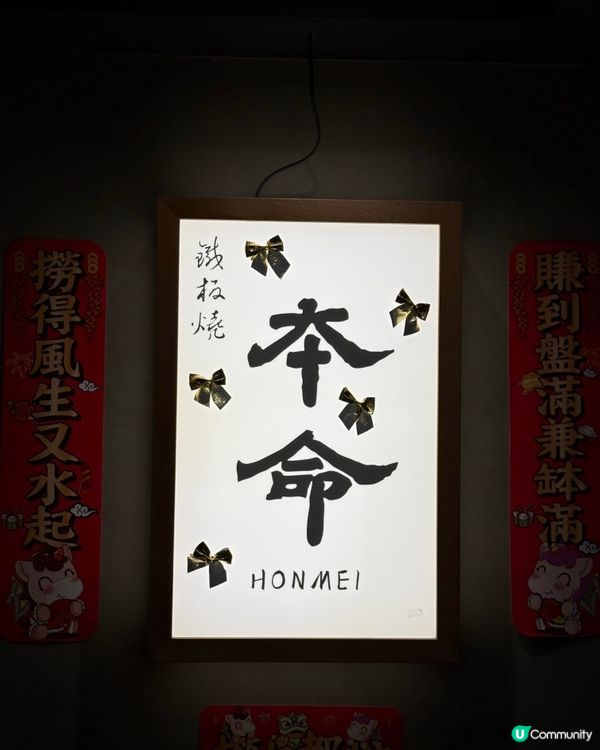 鐵板燒
本命
HONMEI
撈得風生又水起
賺到盤滿兼缽滿
U Community